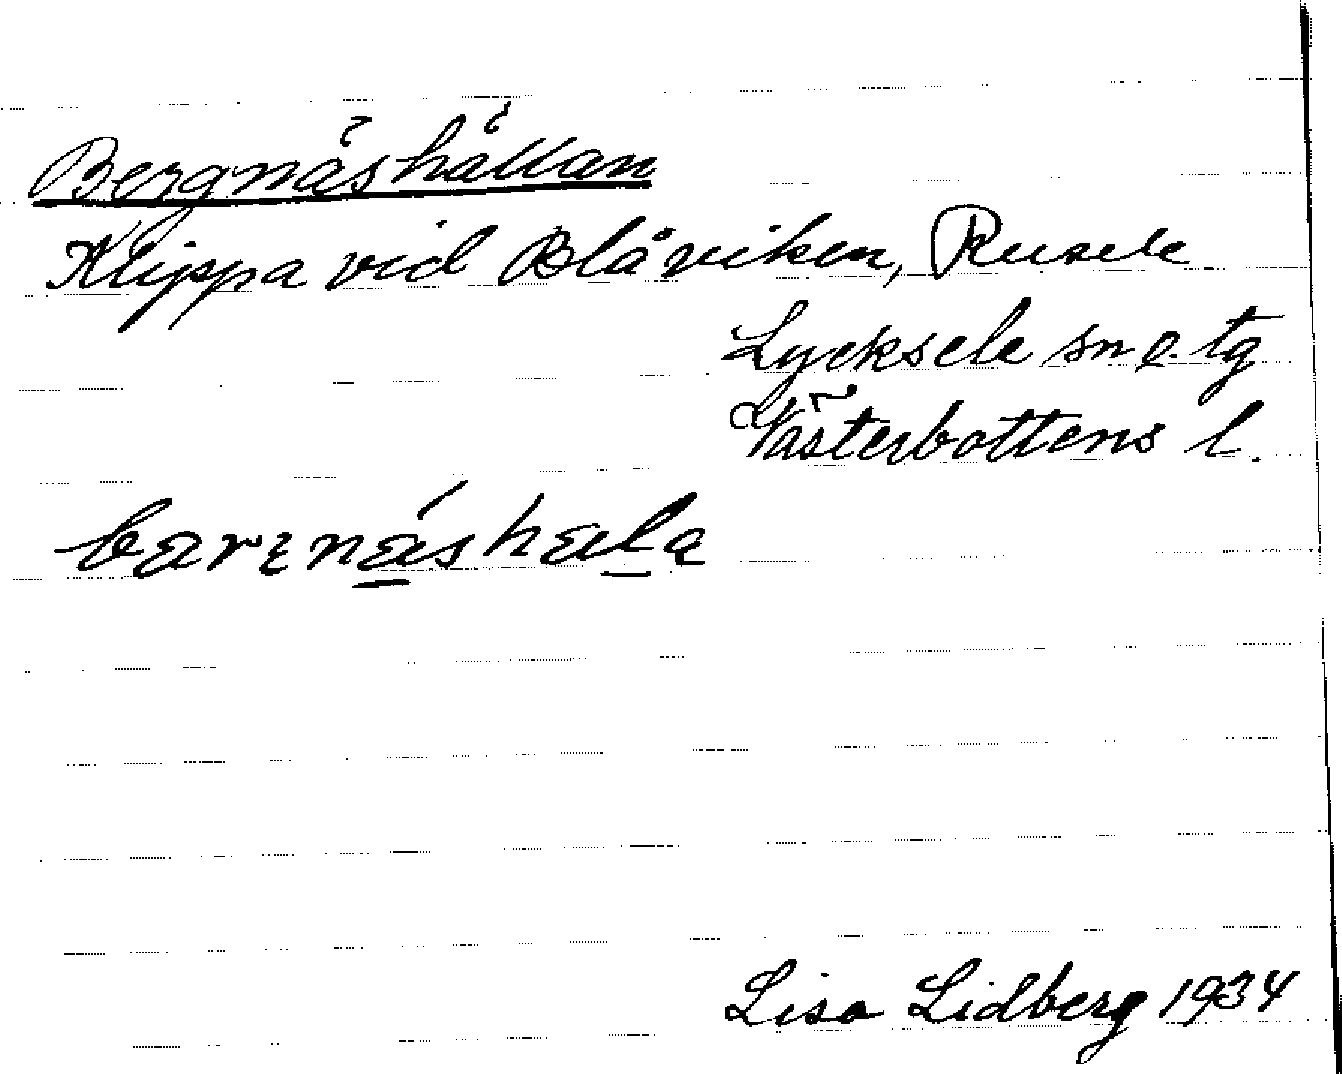 Bergnäshällan
Klippa vid Blåviken, Rusele
Lycksele sn o. tg
Västerbottens l.
Lisa Lidberg 1934